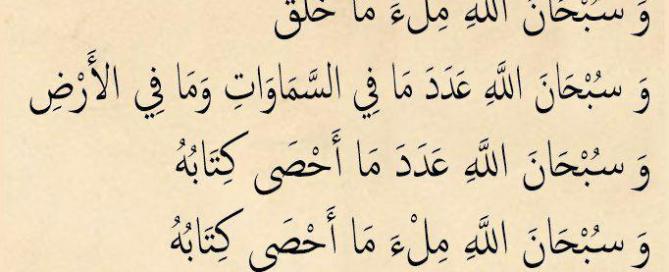 وَ سُبْحَانَ اللَّهِ مِلْءَ مَا خَلَقَ
وَ سُبْحَانَ اللَّهِ عَدَدَ مَا فِي السَّمَاوَاتِ وَمَا فِي الأَرْضِ
وَ سُبْحَانَ اللَّهِ عَدَدَ مَا أَحْصَى كِتَابُهُ
وَ سُبْحَانَ اللَّهِ مِلْءَ مَا أَحْصَى كِتَابُهُ